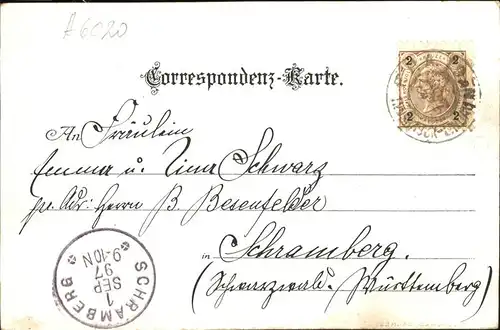 A6020
Correspondenz-Karte.
2 2
2 2
An Fräulein
Emma u. Tina Schwarz
pr. Adr: Herrn B. Besenfelder
in Schramberg.
(Schwarzwald. Württemberg)
SCHRAMBERG
1
SEP
97
9-10N